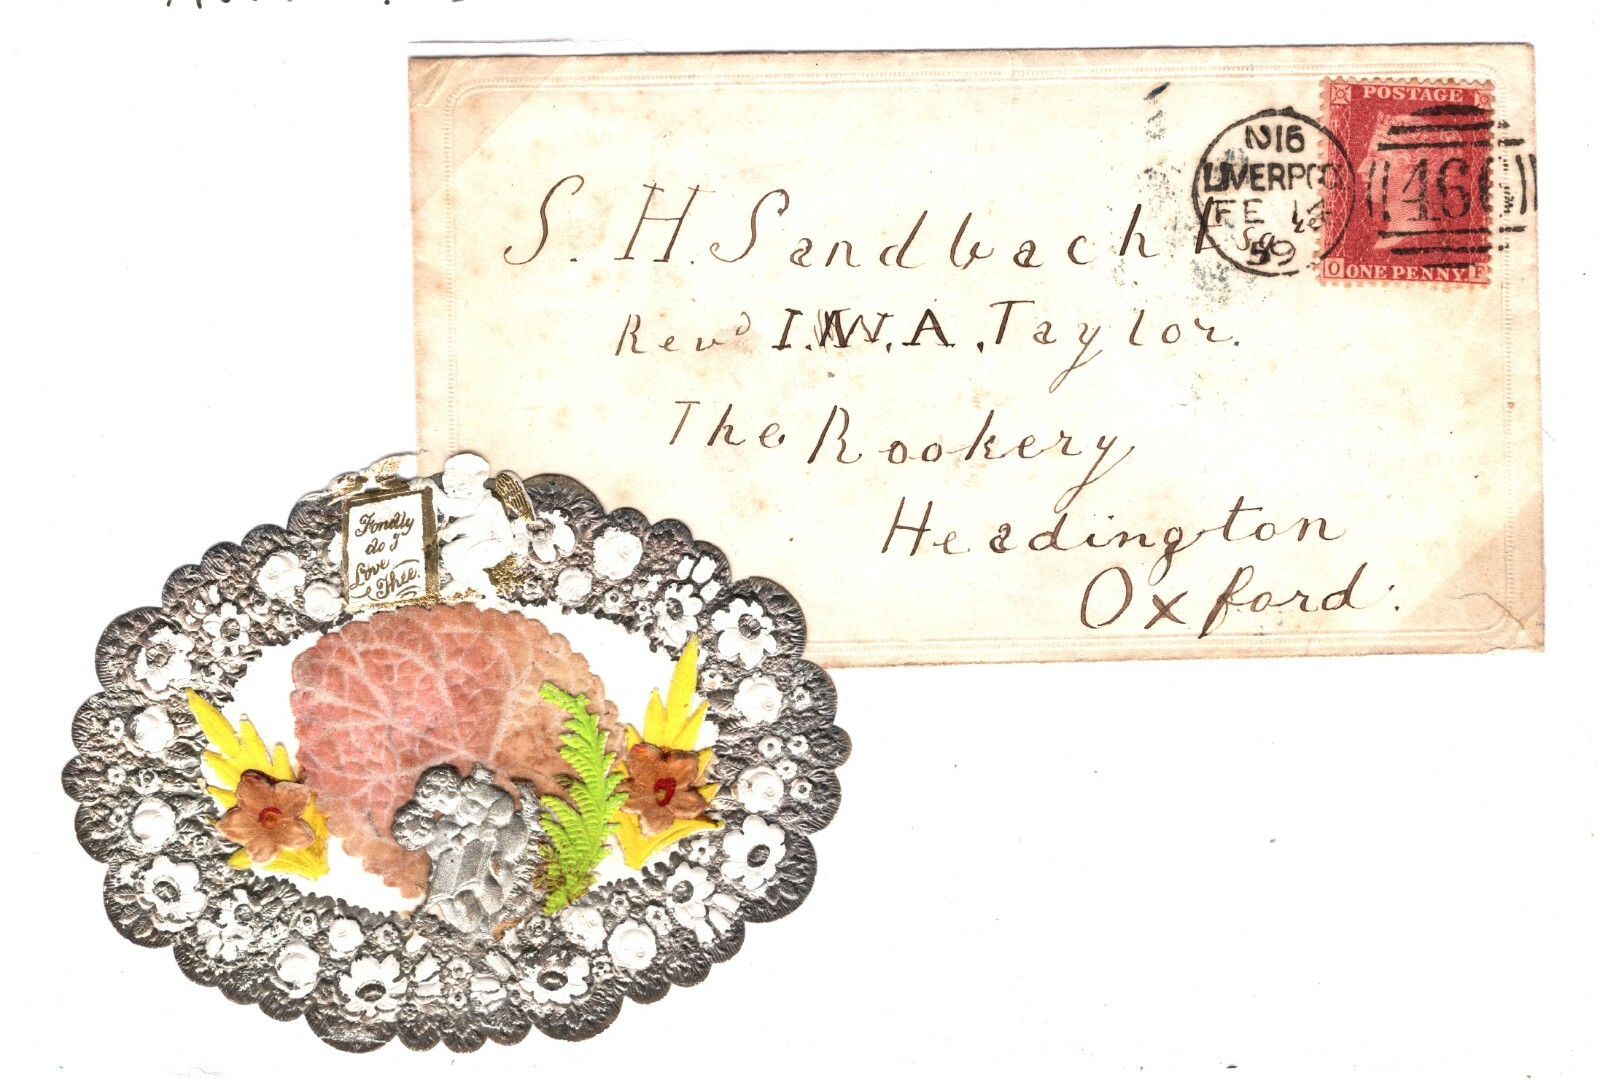 S. H. Sandbach
Revd I.W.A. Taylor.
The Rookery
Headington
Oxford.
POSTAGE
O ONE PENNY F
466
LIVERPOO
FE 14
59
Fondly
do I
Love
Thee.